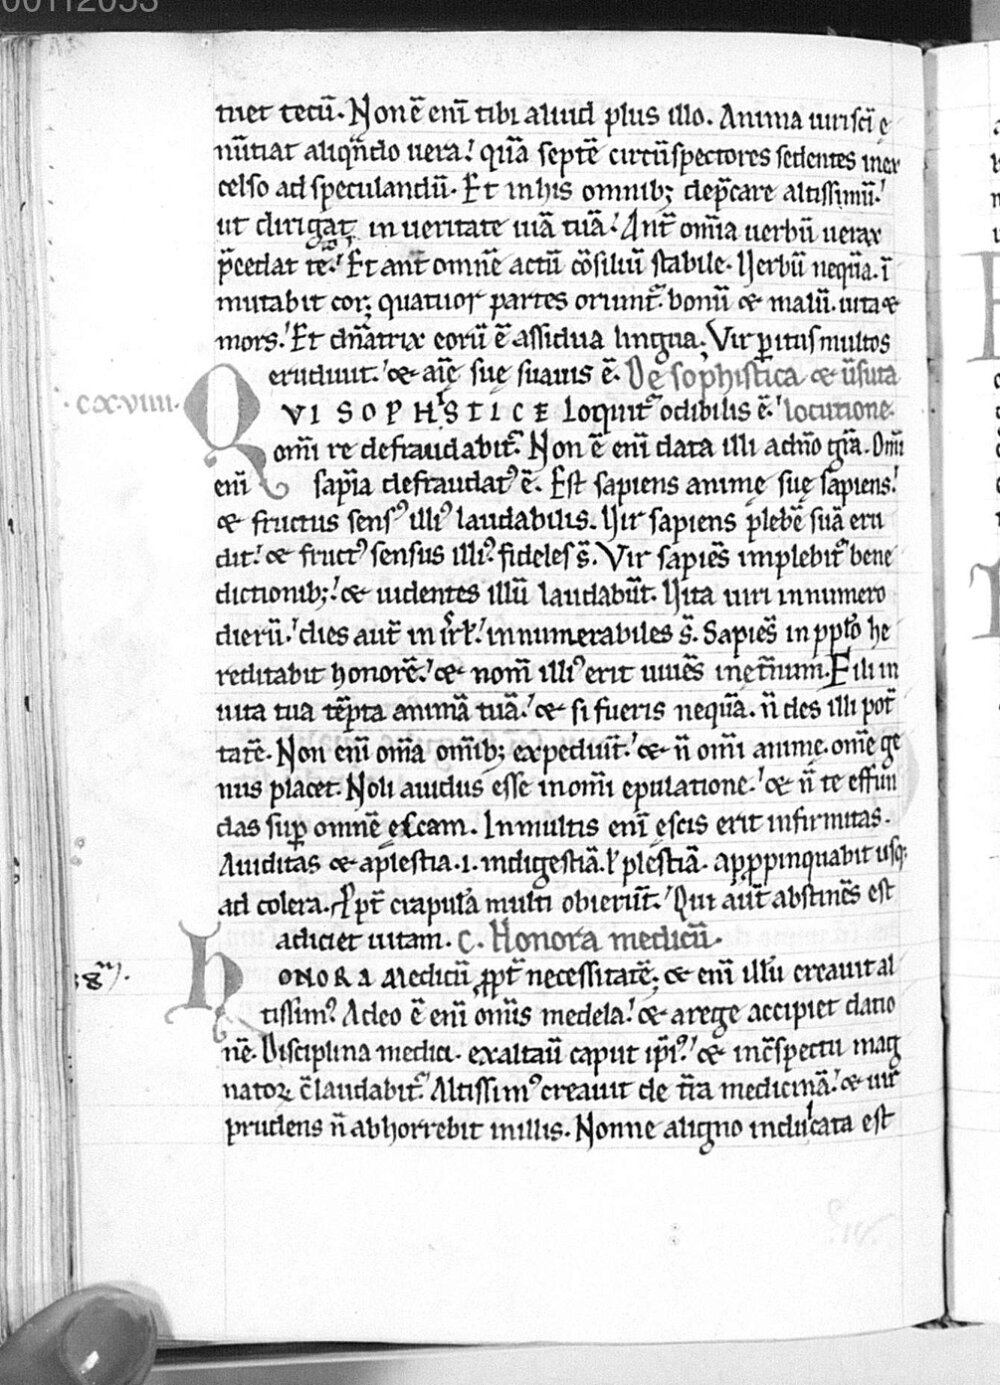 tuet tecū. Non ē enī tibi aliud plus illo. Anima uiri scī ę
nūtiat aliqn̄do uera! quā septē circūspectores sedentes in ex
celso ad speculandū. Et in his omnib; dep̄care altissimū!
ut dirigat in ueritate uiā tuā! Ant̄ om̄ia uerbū uerax
p̄cedat te! Et ant̄ omnē actū cōsiliū stabile. Verbū neqūa. ī
mutabit cor; quatuor partes oriunt̄. bonū & malū. uita &
mors! Et dn̄atrix eorū ē assidua lingua. Vir p̄itus multos
erudiuit! & aīę suę suauis ē. De sophistica & ūsuta
.CXVIIII. QVI SOPHISTICE loquit̄ odibilis ē. locutione.
om̄i re defraudabit̄. Non ē enī data illi a dn̄o gr̄a. Om̄i
enī sapīa defraudatꝰ ē. Est sapiens animę suę sapiens!
& fructus sensꝰ illiꝰ laudabilis. Vir sapiens plebē suā eru
dit! & fructꝰ sensus illiꝰ fideles s̄. Vir sapiēs implebit̄ bene
dictionib;! & uidentes illū laudabūt. Vita uiri in numero
dierū! dies aut̄ in isrl̄! innumerabiles s̄. Sapiēs in pplo he
reditabit honorē! & nom̄ illiꝰ erit uiuēs in et̄num. Fili in
uita tua tēpta animā tuā! & si fueris neqūa. n̄ des illi pot̄
tatē. Non enī om̄a om̄ib; expediūt! & n̄ om̄i anime. om̄e ge
nus placet. Noli auidus esse in om̄i epulatione! & n̄ te effun
das sup̄ omnē ęscam. In multis enī ęscis erit infirmitas.
Auiditas & aplestia .i. indigestiā. l̄ plestiā. app̄pinquabit usq;
ad colera. Ppt̄ crapulā multi obierūt! Qui aut̄ abstinēs est
adiciet uitam. C. Honora medicū.
HONORA medicū ppt̄ necessitatē; & enī illū creauit al
tissimꝰ. Adeo ē enī om̄is medela! & a rege accipiet datio
nē. Disciplina medici. exaltaū caput ip̄iꝰ! & in c̄spectu mag
natoꝝ c̄laudabit̄! Altissimꝰ creauit de t̄ra medicinā! & uir
prudens n̄ abhorrebit in illis. Nonne a ligno indulcata est